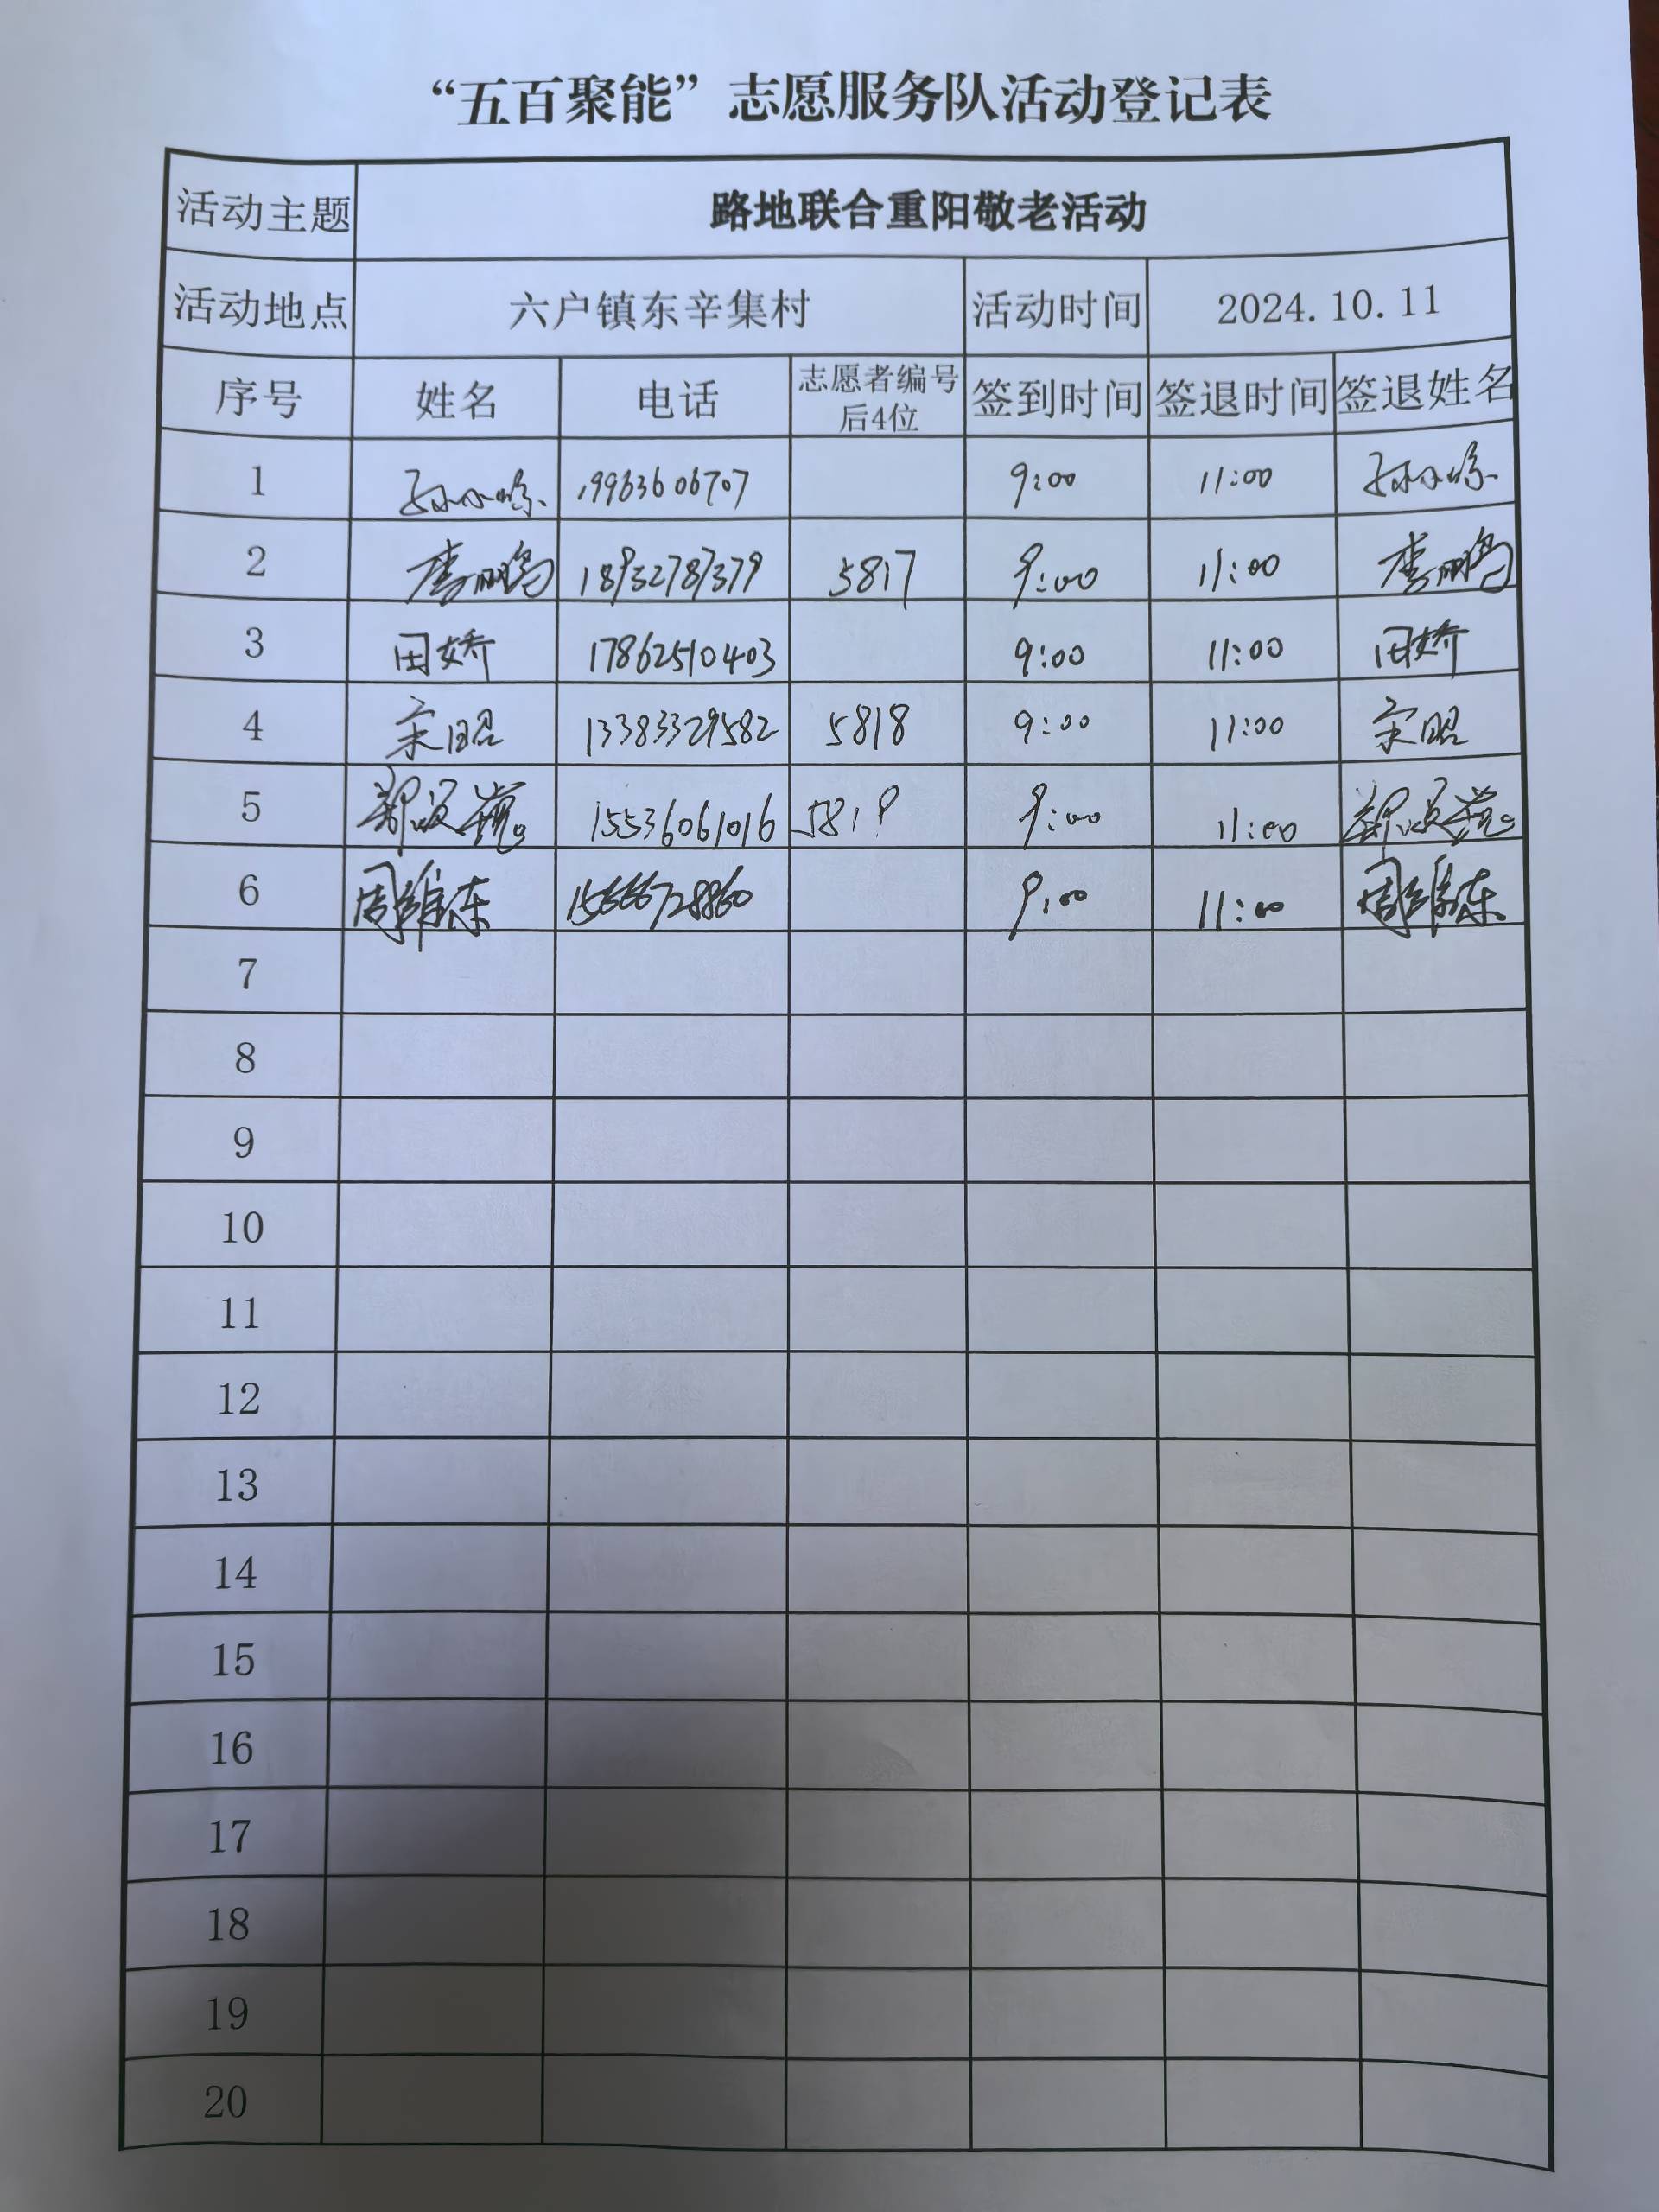 “五百聚能”志愿服务队活动登记表
活动主题 路地联合重阳敬老活动
活动地点 六户镇东辛集村 活动时间 2024.10.11
序号 姓名 电话 志愿者编号后4位 签到时间 签退时间 签退姓名
1 19963606707 9:00 11:00
2 李鹏鸿 18932787379 5817 9:00 11:00 李鹏鸿
3 田娇 17862510403 9:00 11:00 田娇
4 宋昭 13383329582 5818 9:00 11:00 宋昭
5 15536061016 5819 9:00 11:00
6 周维东 15666728860 9:00 11:00 周维东
7
8
9
10
11
12
13
14
15
16
17
18
19
20